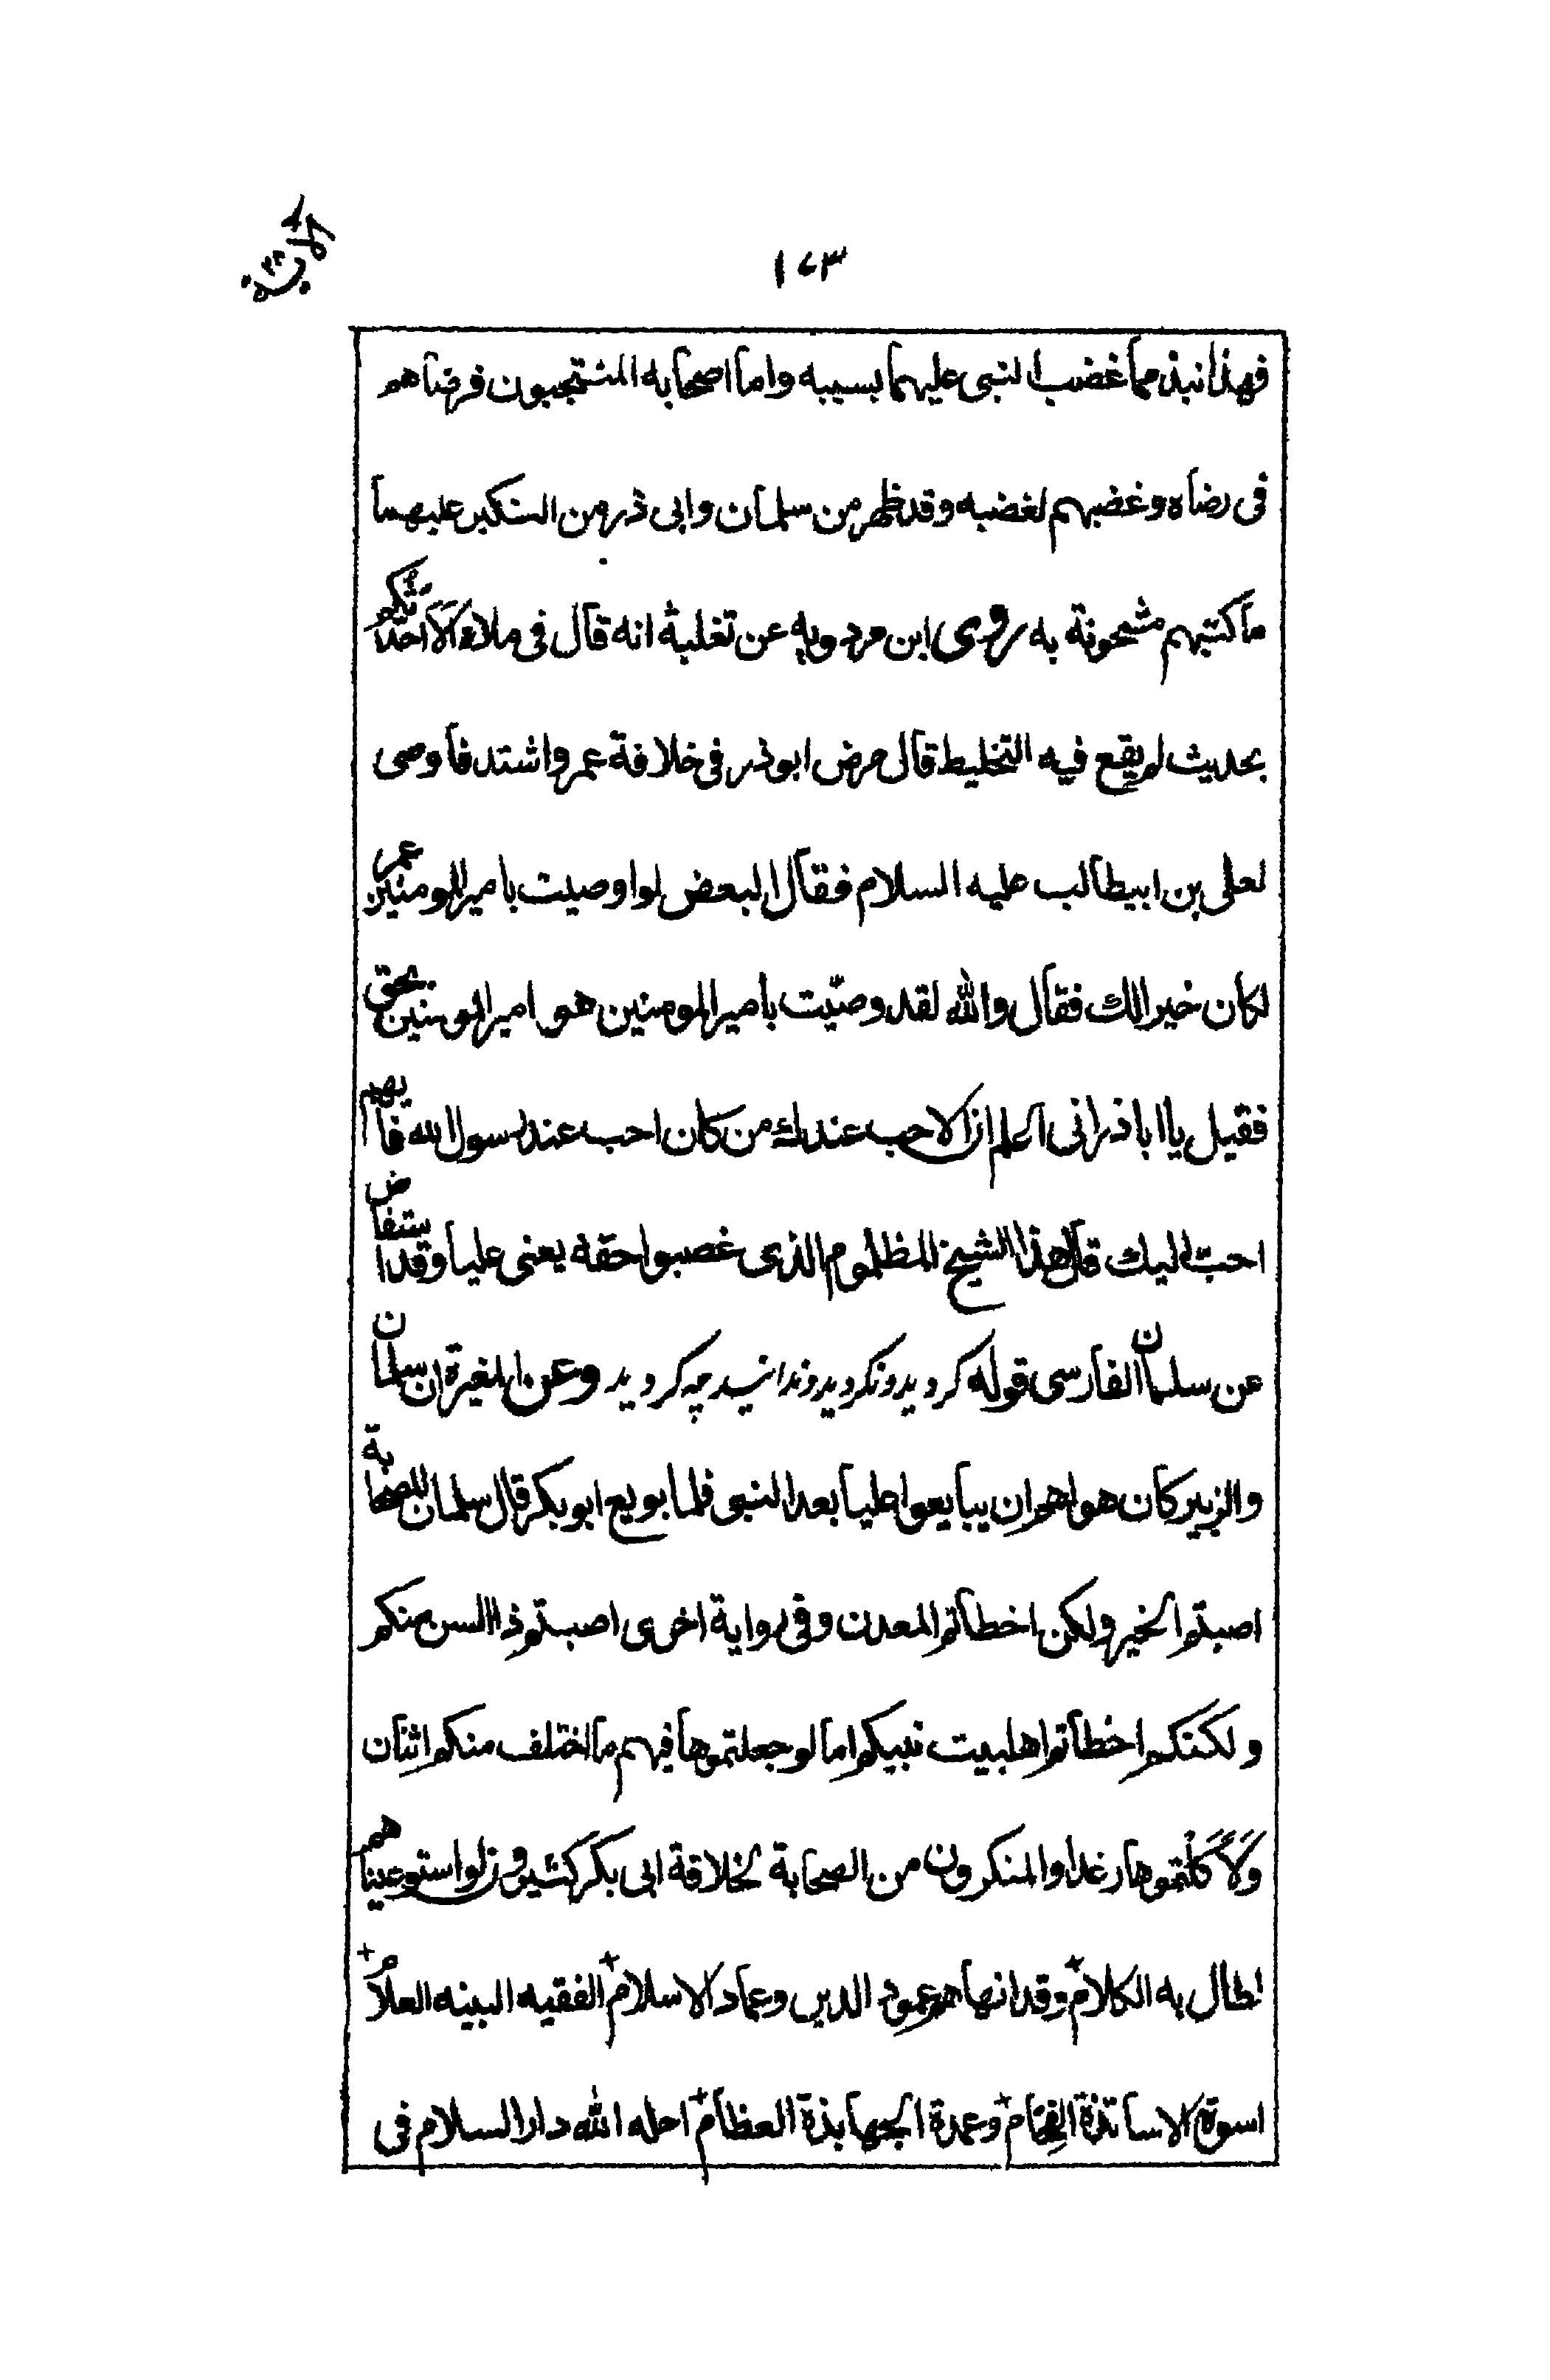 ١٧٣
فهذا نبذ مما غضب النبى عليهما بسببه واما اصحابه المنتجبون فرضاهم
فى رضاه وغضبهم لغضبه وقد ظهر من سلمان وابى ذر من النكير عليهما
ما كتبهم مشحونة به روى ابن مردويه عن تغلبة انه قال فى ملاء الا احدثكم
بحديث لم يقع فيه التخليط قال مرض ابوذر فى خلافة عمر واشتد فاوصى
لعلى بن ابيطالب عليه السلام فقال البعض لو اوصيت بامير المومنين عمر
لكان خيرا لك فقال والله لقد وصيّت بامير المومنين هو امير المومنين بحق
فقيل يا ابا ذر انى اعلم ان الاحب عندك من كان احب عند رسول الله فايهم
احبّ اليك قال هذا الشيخ المظلوم الذى غصبوا حقه يعنى عليا وقد استفاض
عن سلمان الفارسى قوله كرديد ونكرديد وندانيد چه كرديد وعن المغيرة ان سلمان
والزبير كان هواهم ان يبايعوا عليا بعد النبى فلما بويع ابو بكر قال سلمان للصحابة
اصبتم الخير ولكن اخطاتم المعدن وفى رواية اخرى اصبتم ذا السن منكم
ولكنكم اخطاتم اهلبيت نبيكم اما لو جعلتموها فيهم ما اختلف منكم اثنان
ولاكلتموها رغدا والمنكرون من الصحابة لخلافة ابى بكر كثيرون لو استوعيناهم
لطال به الكلام وقد انهاهم عمود الدين وعماد الاسلام الفقيه النبيه العلام
اسوة الاساتذة الفخام وعمدة الجهابذة العظام احله الله دار السلام فى